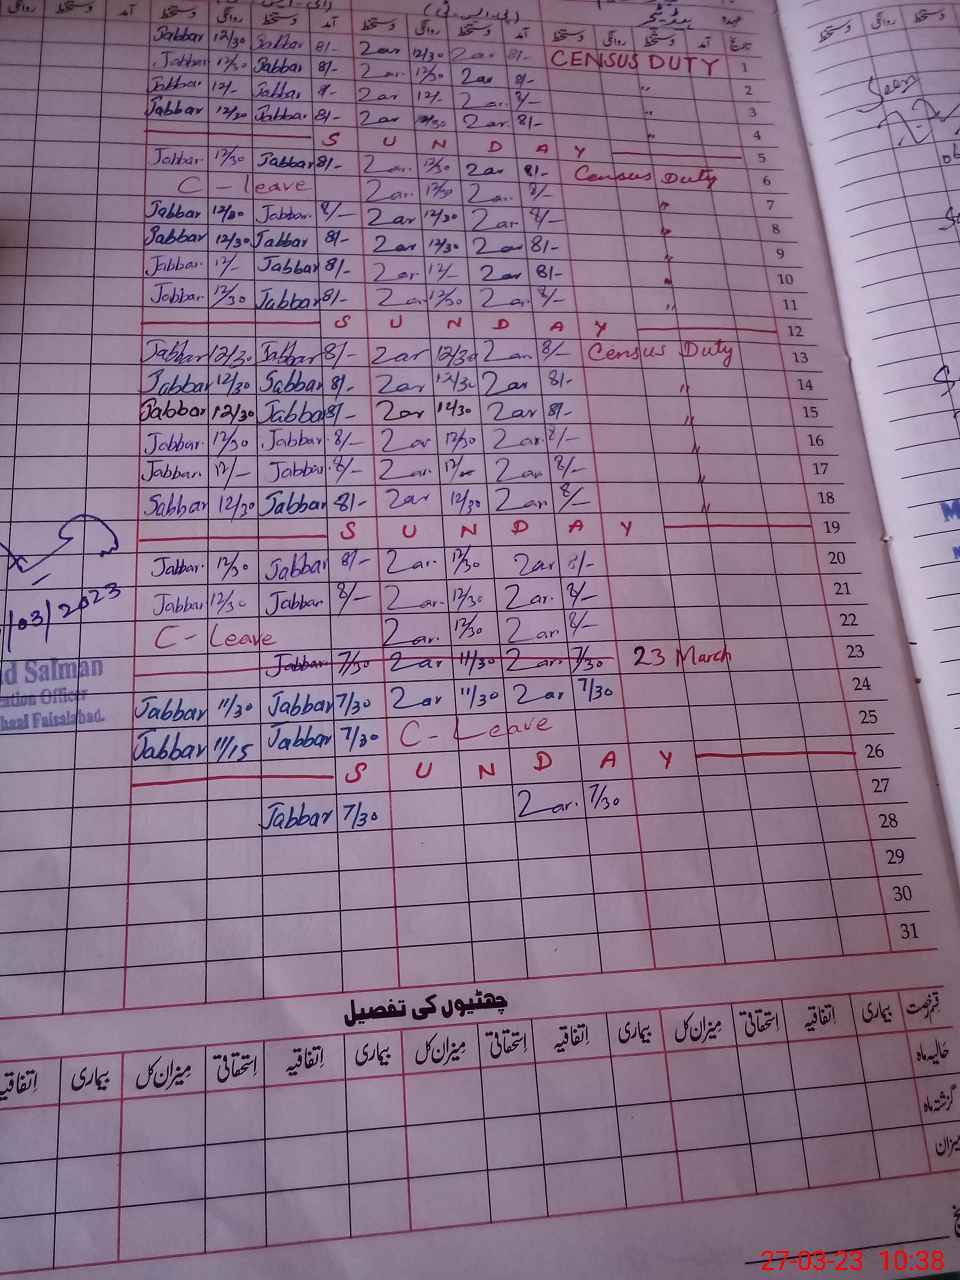 دستخط روانگی دستخط آمد دستخط روانگی دستخط آمد دستخط روانگی دستخط آمد تاریخ
Jabbar 12/30 Jabbar 8/- Zar 12/30 Zar 8/- CENSUS DUTY 1
Jabbar 12/30 Jabbar 8/- Zar. 12/30 Zar 8/- " 2
Jabbar 12/- Jabbar 8/- Zar 12/- Zar. 8/- " 3
Jabbar 12/30 Jabbar 8/- Zar 12/30 Zar. 8/- " 4
S U N D A Y 5
Jabbar 12/30 Jabbar 8/- Zar. 12/30 Zar 8/- Census Duty 6
C - Leave Zar. 12/30 Zar. 8/- " 7
Jabbar 12/30 Jabbar. 8/- Zar 12/30 Zar. 8/- " 8
Jabbar 12/30 Jabbar 8/- Zar 12/30 Zar 8/- " 9
Jabbar. 12/- Jabbar 8/- Zar 12/- Zar 8/- " 10
Jabbar. 12/30 Jabbar 8/- Zar 12/30 Zar. 8/- " 11
S U N D A Y 12
Jabbar 12/30 Jabbar 8/- Zar 12/30 Zar 8/- Census Duty 13
Jabbar 12/30 Jabbar 8/- Zar 12/30 Zar 8/- " 14
Jabbar 12/30 Jabbar 8/- Zar 12/30 Zar 8/- " 15
Jabbar. 12/30 Jabbar. 8/- Zar 12/30 Zar. 8/- " 16
Jabbar. 12/- Jabbar. 8/- Zar. 12/- Zar. 8/- " 17
Jabbar 12/30 Jabbar 8/- Zar 12/30 Zar. 8/- " 18
S U N D A Y 19
Jabbar. 12/30 Jabbar 8/- Zar. 12/30 Zar 8/- 20
Jabbar 12/30 Jabbar 8/- Zar. 12/30 Zar. 8/- 21
C - Leave Zar. 12/30 Zar. 8/- 22
Jabbar 7/30 Zar 11/30 Zar. 7/30 23 March 23
Jabbar 11/30 Jabbar 7/30 Zar 11/30 Zar 7/30 24
Jabbar 11/15 Jabbar 7/30 C - Leave 25
S U N D A Y 26
Jabbar 7/30 Zar. 7/30 27
28
29
30
31
/03/2023
d Salman
cation Officer
haal Faisalabad.
Seen
چھٹیوں کی تفصیل
قسم رخصت بیماری اتفاقیہ استحقاقی میزان کل بیماری اتفاقیہ استحقاقی میزان کل بیماری اتفاقیہ استحقاقی میزان کل بیماری اتفاقیہ
حالیہ ماہ
گزشتہ ماہ
میزان
27-03-23 10:38